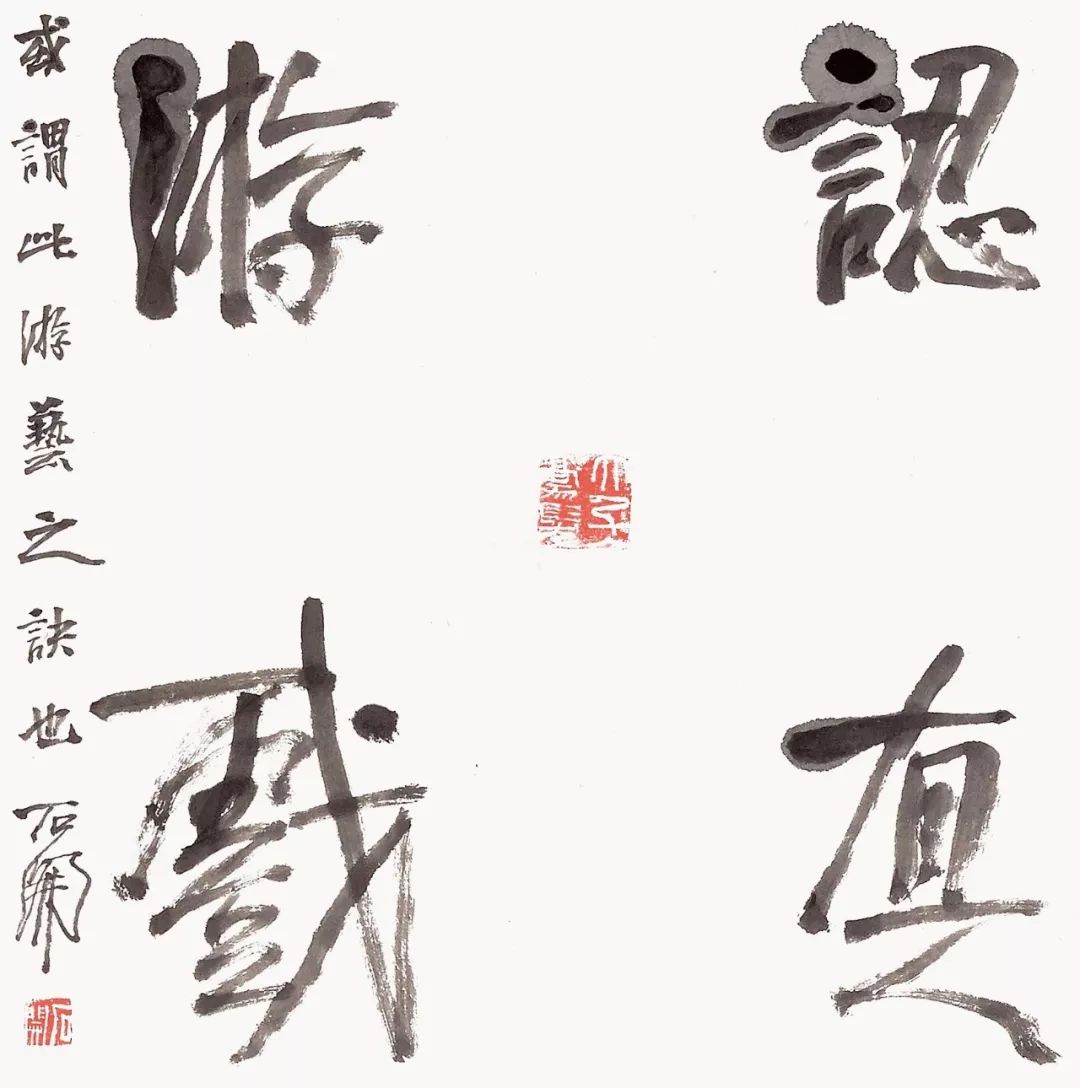 認真
游戲
或謂此游藝之訣也 石開